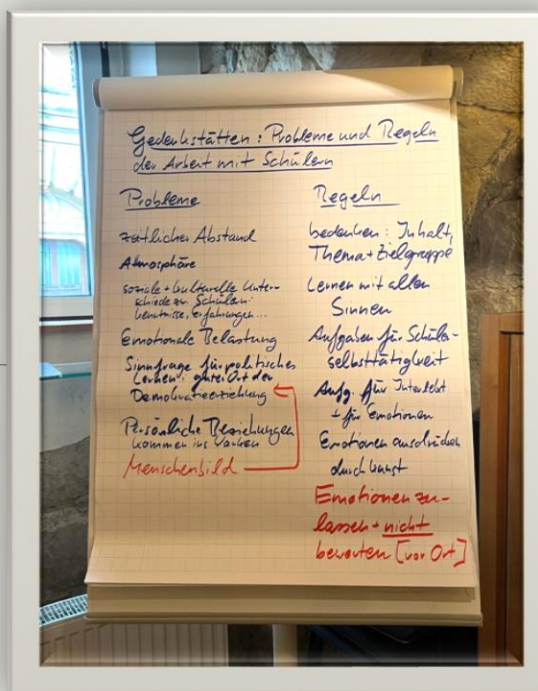 Gedenkstätten: Probleme und Regeln
der Arbeit mit Schülern
Probleme
zeitlicher Abstand
Atmosphäre
soziale + kulturelle Unter-
schiede zw. Schülern:
kenntnisse, erfahrungen...
Emotionale Belastung
Sinnfrage für politisches
Lernen: guter Ort der
Demokratieerziehung
Persönliche Beziehungen
kommen ins Wanken
Menschenbild
Regeln
bedenken: Inhalt,
Thema + Zielgruppe
Lernen mit allen
Sinnen
Aufgaben für Schüler-
selbsttätigkeit
Aufg. für Intellekt
+ für Emotionen
Emotionen ausdrücken
durch Kunst
Emotionen zu-
lassen + nicht
bewerten [vor Ort]